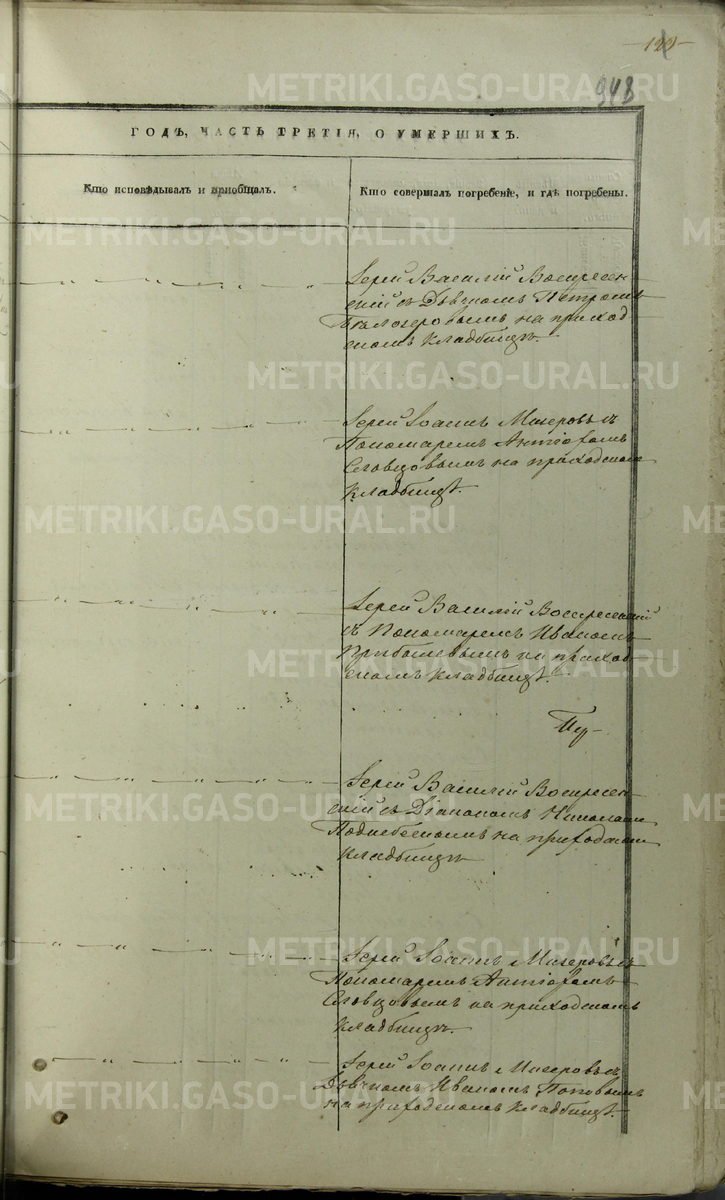 948
ГОДЪ, ЧАСТЬ ТРЕТІЯ, О УМЕРШИХЪ.
Кто исповѣдывалъ и приобщалъ.
Кто совершалъ погребеніе, и гдѣ погребены.
Іерей Василій Воскресен-
скій съ Дьячкомъ Петромъ
Бѣлозеровымъ на приход
скомъ кладбищѣ.
Іерей Іоаннъ Мизеровъ съ
Пономаремъ
на приходскомъ
кладбищѣ.
Іерей Василій Воскресенскій
съ Пономаремъ Иваномъ
Прибылевымъ на приход
скомъ кладбищѣ.
Іерей Василій Воскресен
скій съ Діакономъ Николаемъ
на приходскомъ
кладбищѣ
Іерей Іоаннъ Мизеровъ съ
Пономаремъ
на приходскомъ
кладбищѣ.
Іерей Іоаннъ Мизеровъ съ
Дьячкомъ Иваномъ Поповымъ
на приходскомъ кладбищѣ.
METRIKI.GASO-URAL.RU